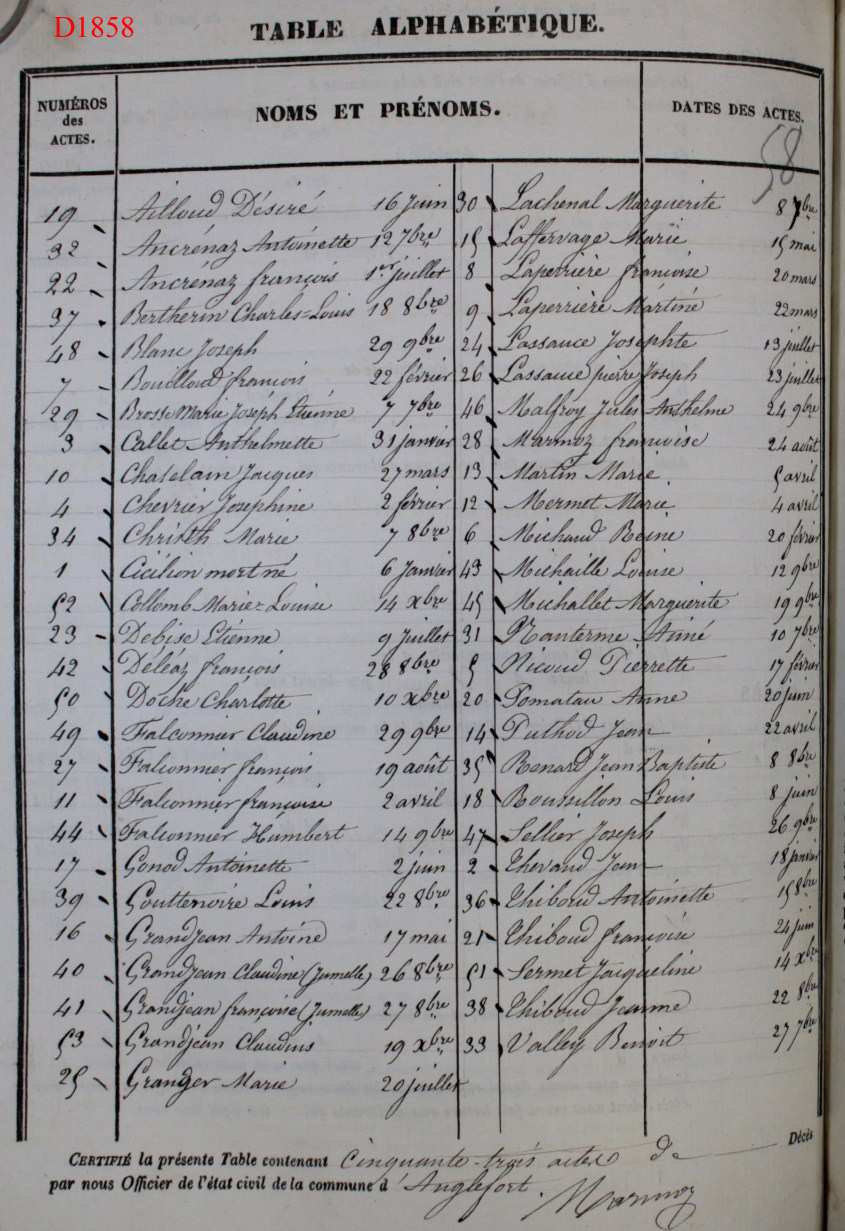 D1858
TABLE ALPHABÉTIQUE.
NUMÉROS des ACTES.
NOMS ET PRÉNOMS.
DATES DES ACTES.
58
19 Ailloud Désiré 16 juin
32 Ancrénaz Antoinette 12 7bre
22 Ancrénaz françois 1er juillet
37 Bertherin Charles=Louis 18 8bre
48 Blanc Joseph 29 9bre
7 Bouilloud françois 22 février
29 Brosse Marie Joseph Etienne 7 7bre
3 Callet Anthelmette 31 janvier
10 Chatelain Jacques 27 mars
4 Chevrier Josephine 2 février
34 Christh Marie 7 8bre
1 Cicilion mort né 6 Janvier
52 Collomb Marie=Louise 14 Xbre
23 Debise Etienne 9 juillet
42 Déléaz françois 28 8bre
50 Doche Charlotte 10 Xbre
49 Falconnier Claudine 29 9bre
27 Falconnier françois 19 août
11 Falconnier françoise 2 avril
44 Falconnier Humbert 14 9bre
17 Gonod Antoinette 2 juin
39 Gouttenoire Louis 22 8bre
16 GrandJean Antoine 17 mai
40 GrandJean Claudine (Jumelle) 26 8bre
41 Grandjean françoise (Jumelle) 27 8bre
53 Grandjean Claudius 19 Xbre
25 Granger Marie 20 juillet
30 Lachenal Marguerite 8 7bre
15 Laffervage Marie 15 mai
8 Laperrière françoise 20 mars
9 Laperrière Martine 22 mars
24 Lassauce Josephte 13 juillet
26 Lassauce pierre Joseph 23 juillet
46 Malfroy Jules Anthelme 24 9bre
28 Marmoz françoise 24 août
13 Martin Marie 5 avril
12 Mermet Marie 4 avril
6 Michaud Reine 20 février
43 Michaille Louise 12 9bre
45 Michallet Marguerite 19 9bre
31 Nanterme Aimé 10 7bre
5 Nicoud Pierrette 17 février
20 Pomatau Anne 20 juin
14 Puthod Jean 22 avril
35 Renard Jean Baptiste 8 8bre
18 Roussillon Louis 8 juin
47 Sellier Joseph 26 9bre
2 Thevand Jean 18 janvier
36 Thiboud Antoinette 15 8bre
21 Thiboud françoise 24 juin
51 Sermet Jacqueline 14 Xbre
38 Thiboud Jeanne 22 8bre
33 Valley Benoit 27 7bre
CERTIFIÉ la présente Table contenant Cinquante-trois actes de Décès
par nous Officier de l'état civil de la commune d'Anglefort. Marmoz